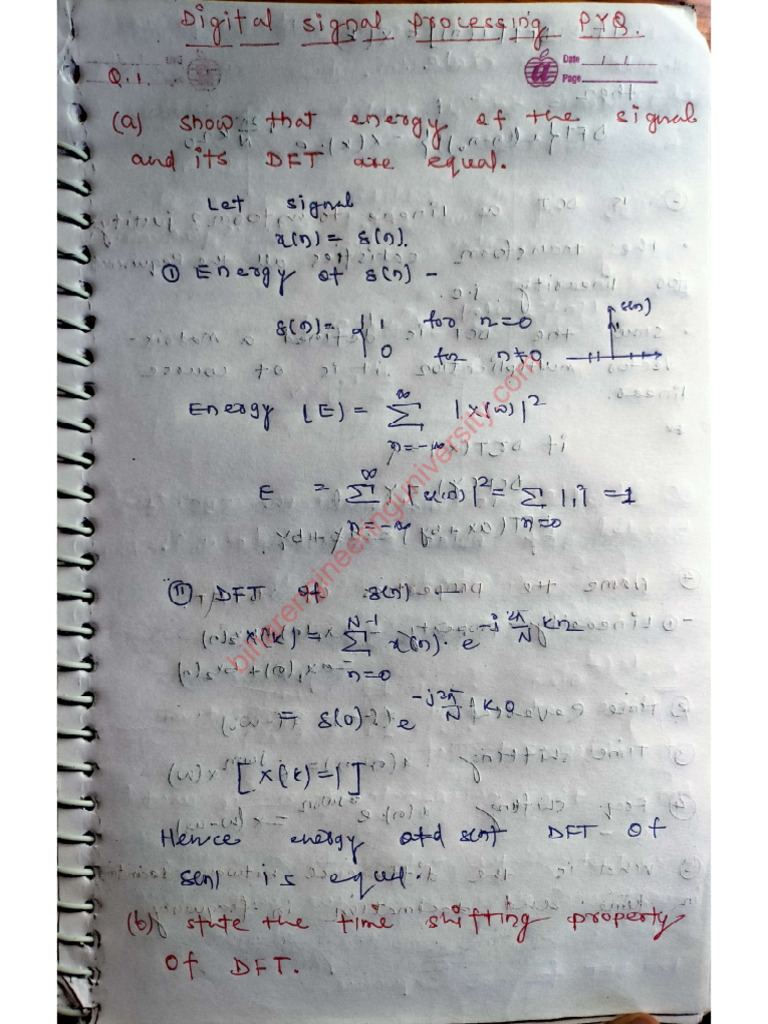 Digital signal processing PYQ.
Q.1.
Date
Page
(a) show that energy of the signal
and its DFT are equal.
Let signal
x(n) = δ(n).
① Energy of δ(n) -
δ(n) = { 1 for n=0
0 for n≠0
δ(n)
Energy (E) = ∞ ∑ n=-∞ |x(n)|²
E = ∞ ∑ n=-∞ |δ(n)|² = ∑ n=0 |1|² = 1
② DFT of δ(n) -
x(k) = N-1 ∑ n=0 x(n). e^-j 2π/N kn
= δ(0) e^-j 2π/N k.0
[x(k)=1]
Hence energy and DFT of
δ(n) is equal.
(b) state the time shifting property
of DFT.
biharengineeringuniversity.com